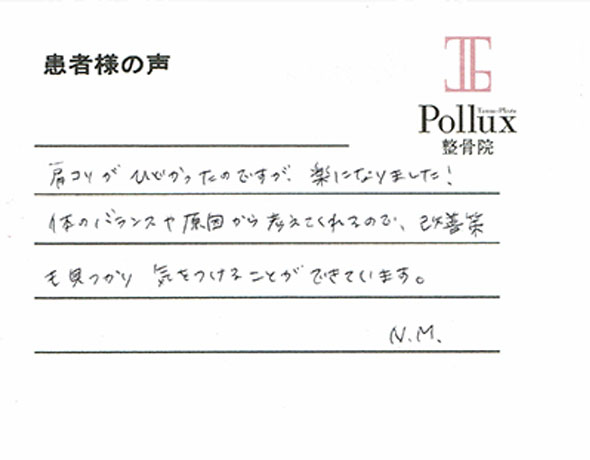 患者様の声
Pollux
整骨院
肩コリがひどかったのですが、楽になりました!
体のバランスや原因から考えてくれるので、改善策
も見つかり気をつけることができています。
N.M.